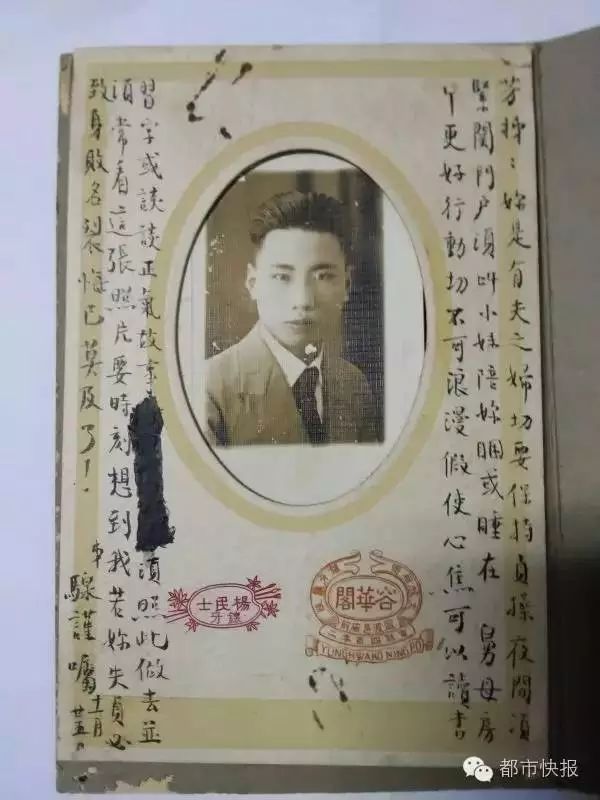 芳娣：妳是有夫之婦切要保持貞操夜間須
緊閉門戶須叫小妹陪妳睏或睡在 舅母房
更好行動切不可浪漫假使心焦可以讀書
習字或談談正氣故事 須照此做去並
須常看這張照片要時刻想到我若妳失貞必
致身敗名裂悔已莫及了！
謹囑
廿五日
容華閣
YUNGHWAKO NINGPO
楊民士
鑲牙
都市快报